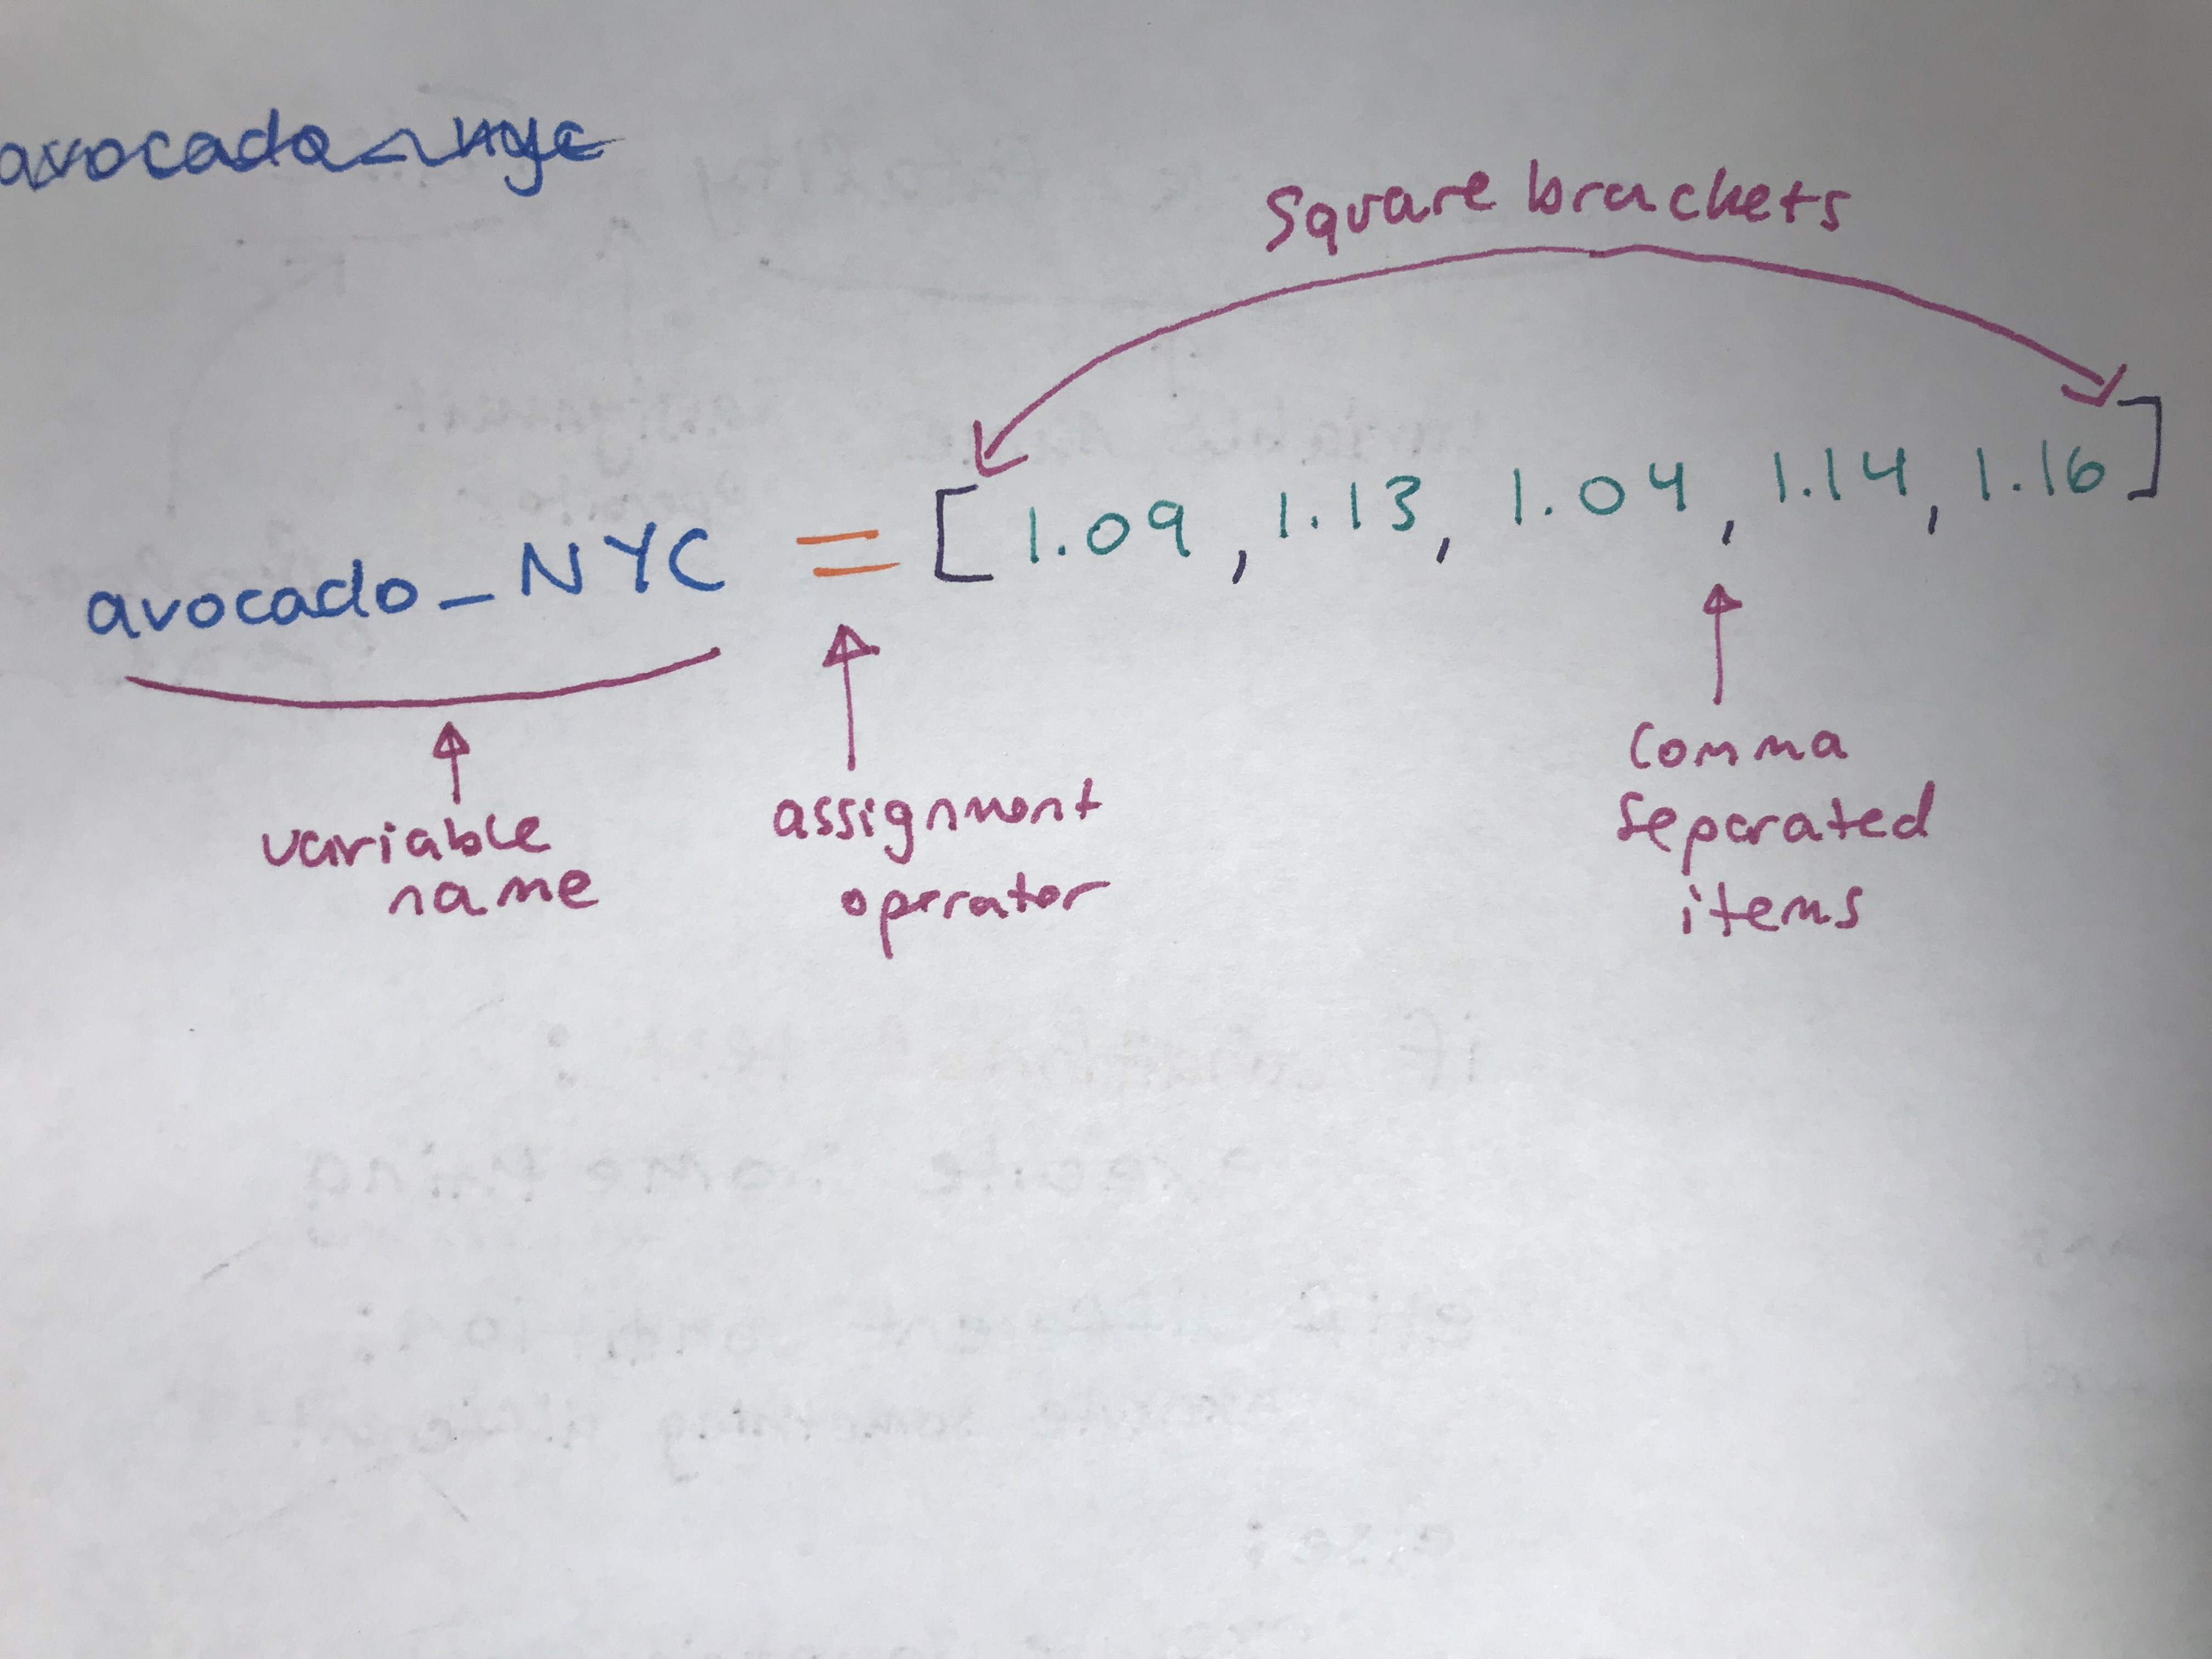 Square brackets
avocado_NYC = [1.09, 1.13, 1.04, 1.14, 1.16]
variable
name
assignment
operator
comma
separated
items